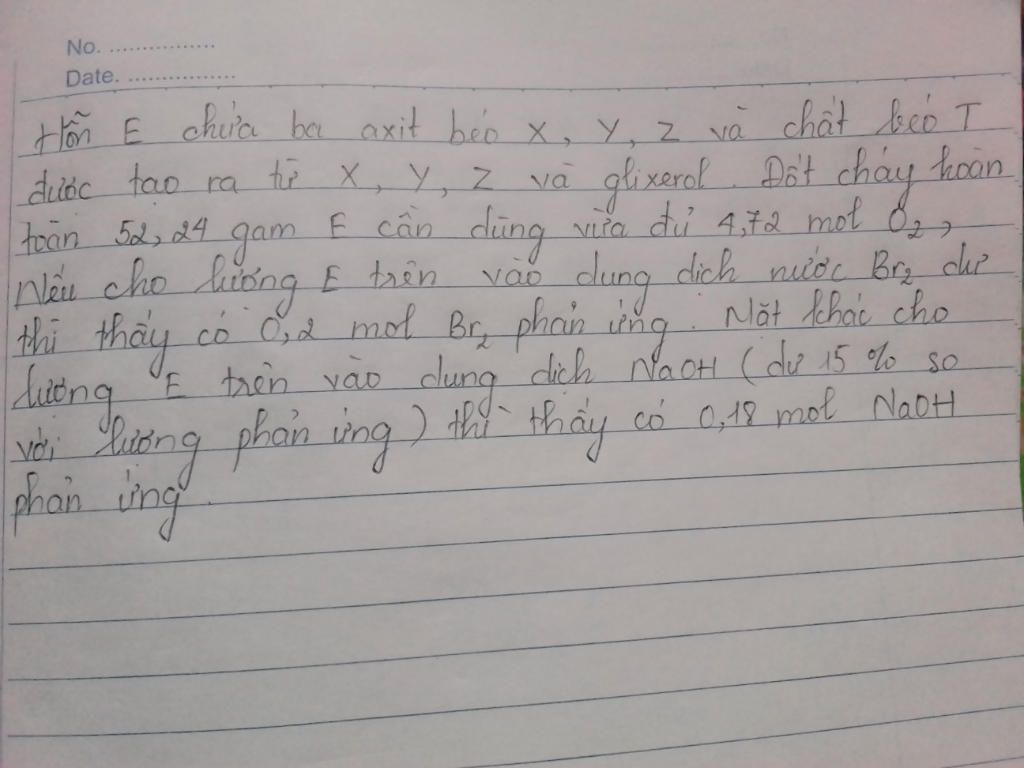 No. ................
Date. ................
Hỗn E chứa ba axit béo X, Y, Z và chất béo T
được tạo ra từ X, Y, Z và glixerol. Đốt cháy hoàn
toàn 52,24 gam E cần dùng vừa đủ 4,72 mol O2,
Nếu cho lượng E trên vào dung dịch nước Br2 dư
thì thấy có 0,2 mol Br2 phản ứng. Mặt khác cho
lượng E trên vào dung dịch NaOH (dư 15 % so
với lượng phản ứng) thì thấy có 0,18 mol NaOH
phản ứng.